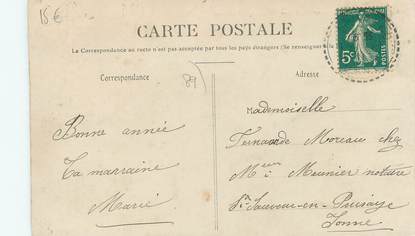 15€
CARTE POSTALE
La Correspondance au recto n'est pas acceptée par tous les pays étrangers (Se renseigner
Correspondance
Adresse
89
5c
Bonne année
Ta marraine
Marie
Mademoiselle
Fernande Moreau chez
Meunier notaire
St Sauveur-en-Puisaye
Yonne